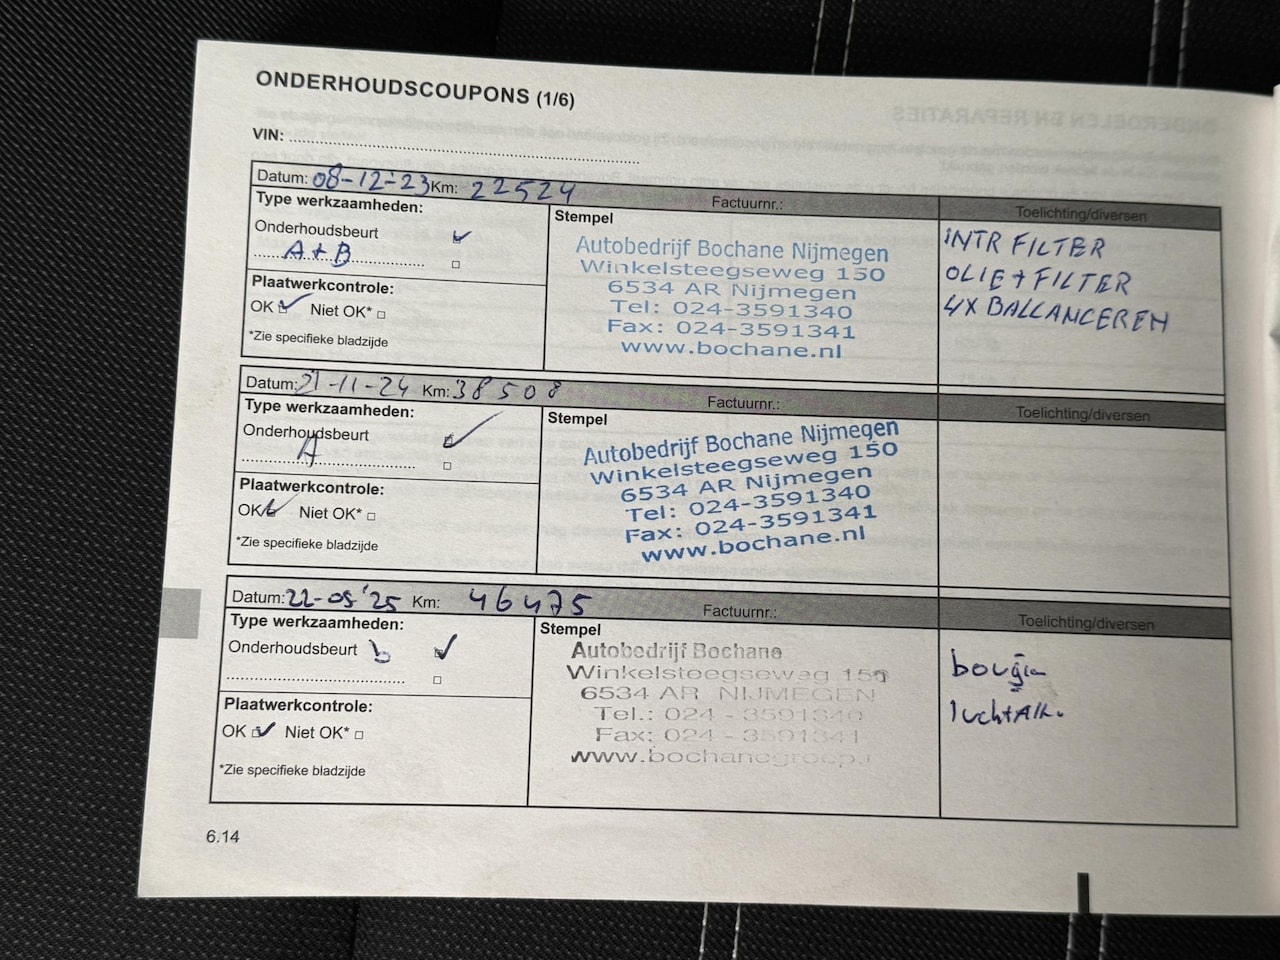 ONDERHOUDSCOUPONS (1/6)
VIN:
Datum: 08-12-'23 Km: 22524 Factuurnr.: Toelichting/diversen
Type werkzaamheden:
Onderhoudsbeurt
A+B
Plaatwerkcontrole:
OK Niet OK*
*Zie specifieke bladzijde
Stempel
Autobedrijf Bochane Nijmegen
Winkelsteegseweg 150
6534 AR Nijmegen
Tel: 024-3591340
Fax: 024-3591341
www.bochane.nl
INTR FILTER
OLIE + FILTER
4X BALLANCEREN
Datum: 21-11-24 Km: 38508 Factuurnr.: Toelichting/diversen
Type werkzaamheden:
Onderhoudsbeurt
A
Plaatwerkcontrole:
OK Niet OK*
*Zie specifieke bladzijde
Stempel
Autobedrijf Bochane Nijmegen
Winkelsteegseweg 150
6534 AR Nijmegen
Tel: 024-3591340
Fax: 024-3591341
www.bochane.nl
Datum: 22-05'25 Km: 46475 Factuurnr.: Toelichting/diversen
Type werkzaamheden:
Onderhoudsbeurt b
Plaatwerkcontrole:
OK Niet OK*
*Zie specifieke bladzijde
Stempel
Autobedrijf Bochane
Winkelsteegseweg 150
6534 AR NIJMEGEN
Tel.: 024 - 3591340
Fax: 024 - 3591341
www.bochanegroep.
6.14